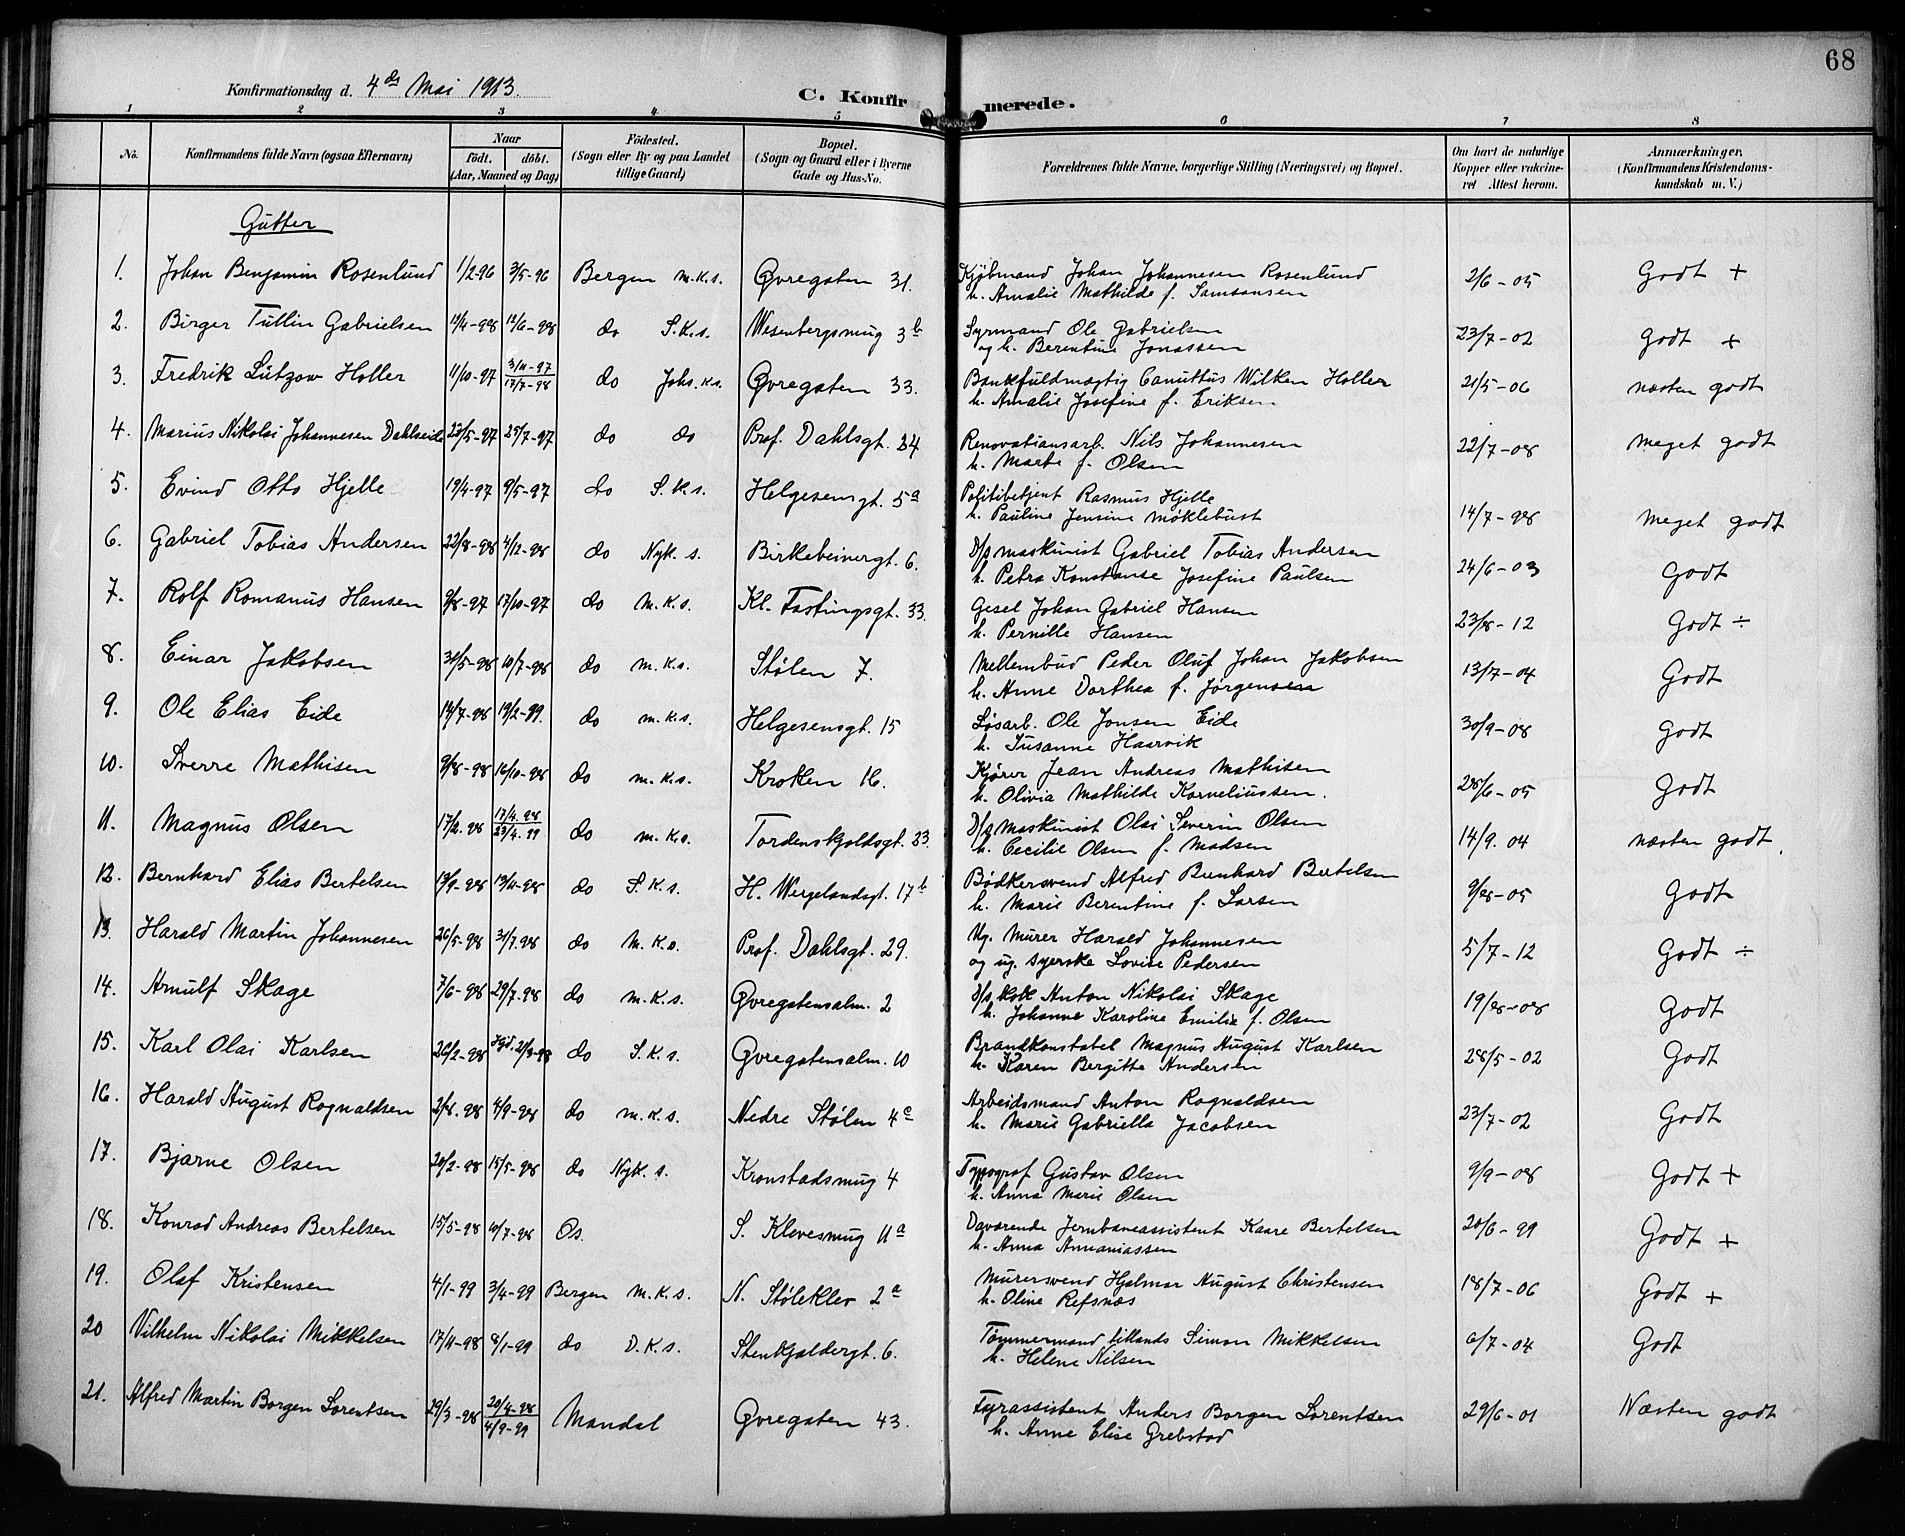 68
Konfirmationsdag d. 4de Mai 1913.
C. Konfirmerede.
1 2 3 4 5 6 7 8
No. Konfirmandens fulde Navn (ogsaa Efternavn) Naar födt. döbt. (Aar, Maaned og Dag) Födested. (Sogn eller By og paa Landet tillige Gaard) Bopæl. (Sogn og Gaard eller i Byerne Gade og Hus-No. Forældrenes fulde Navne, borgerlige Stilling (Næringsvei) og Bopæl. Om havt de naturlige Kopper eller vakcineret Attest herom. Anmærkninger. (Konfirmandens Kristendomskundskab m. V.)
Gutter
1. Johan Benjamin Rosenlund 1/2-96 3/5-96 Bergen m.k.s. Øvregaten 31. Kjøbmand Johan Johannesen Rosenlund 2/6-05 Godt +
h. Amalie Mathilde f. Samsonsen
2. Birger Tullin Gabrielsen 11/4-98 12/6-98 do S.k.s. Wesenbergsmug 3b Syrmand Ole Gabrielsen 23/7-02 Godt +
og h. Berentine Jonassen
3. Fredrik Lützow Holler 11/10-97 3/11-97 17/7-98 do Johs.ks. Øvregaten 33. Bankfuldmægtig Canuttus Wilken Holler 21/5-06 næsten godt
h. Amalie Josefine f. Eriksen
4. Marius Nikolai Johannesen Dahlseide 23/5-97 25/7-97 do do Prof. Dahlsgt. 34 Renovationsarb. Nils Johannesen 22/7-08 meget godt
h. Marte f. Olsen
5. Evind Otto Hjelle 19/4-97 9/5-97 do S.k.s. Helgesensgt. 5a Politibetjent Rasmus Hjelle 14/7-98 meget godt
h. Pauline Jensine Møklebust
6. Gabriel Tobias Andersen 22/8-98 4/12-98 do Nyk. s. Birkebeinergt. 6. D/s maskinist Gabriel Tobias Andersen 24/6-03 Godt
h. Petra Konstanse Josefine Paulsen
7. Rolf Romanus Hansen 9/8-97 17/10-97 do m.k.s. Kl. Fastingsgt. 33. Gesel Johan Gabriel Hansen 23/8-12 Godt ÷
h. Pernille Hansen
8. Einar Jakobsen 31/5-98 10/7-98 do m.k.s. Stølen 7. Mellembud Peder Oluf Johan Jakobsen 13/7-04 Godt
h. Anne Dorthea f. Jørgensen
9. Ole Elias Eide 14/7-98 19/2-99. do m.k.s. Helgesensgt. 15 Løsarb. Ole Jonsen Eide 30/9-08 Godt
h. Susanne Haarvik
10. Sverre Mathisen 9/8-98 16/10-98 do m.k.s. Kroken 16. Kjører Jean Andreas Mathisen 28/6-05 Godt
h. Olivia Mathilde Korneliussen.
11. Magnus Olsen 17/2.98 17/4.98 23/4.99 do m.k.s. Tordenskjoldsgt. 23. D/s Maskinist Olai Severin Olsen 14/9.04 næsten godt.
h. Cecilie Olsen f. Madsen
12. Bernhard Elias Bertelsen 13/9-98 13/11-98 do S.k.s. H. Wergelandsgt. 17b Bødkersvend Alfred Bernhard Bertelsen 9/8-05 Godt
h. Marie Berentine f. Larsen
13. Harald Martin Johannesen 26/5-98 31/7.98 do m.k.s. Prof. Dahlsgt. 29. Ug. Murer Harald Johannesen 5/7-12 Godt ÷
og ug. syerske Lovise Pedersen
14. Arnulf Skage 7/6-98 29/7.98 do m.k.s. Øvregatensalm. 2 D/s kok Anton Nikolai Skage 19/8-08 Godt
h. Johanne Karoline Emilie f. Olsen
15. Karl Olai Karlsen 26/2-98 Hjd. 2/3-98 do S.k.s. Øvregatensalm. 10 Brandkonstabel Magnus August Karlsen 28/5-02 Godt
h. Karen Bergitte Andersen
16. Harald August Rognaldsen 2/8.98 4/9-98 do m.k.s. Nedre Stølen 4c Arbeidsmand Anton Rognaldsen 23/7-02 Godt
h. Marie Gabriella Jacobsen
17. Bjarne Olsen 20/2-98 15/5-98 do Nyk. s. Kronstadsmug 4 Typograf Gustav Olsen 9/9-08 Godt +
h. Anna Marie Olsen
18. Konrad Andreas Bertelsen 15/5-98 10/7-98 Os. S. Klevesmug 11a Daværende Jernbaneassistent Kaare Bertelsen 20/6-99 Godt +
h. Anna Annaniassen
19. Olaf Kristensen 4/1-99 3/4-99 Bergen m.k.s. N. Støleklev 2a Murersvend Hjalmar August Christensen 18/7-06 Godt +
h. Oline Refsnæs
20 Vilhelm Nikolai Mikkelsen 17/11-98 8/1-99 do D.k.s. Stenkjeldergt. 6. Tømmermand tillands Simon Mikkelsen 6/7-04 Godt
h. Helene Nilsen
21. Alfred Martin Borgen Lorentsen 29/3-98 20/4-98 4/9-99 Mandal Øvregaten 43. Fyrassistent Anders Borgen Lorentsen 29/6-01 Næsten godt
h. Anne Elise Grebstad